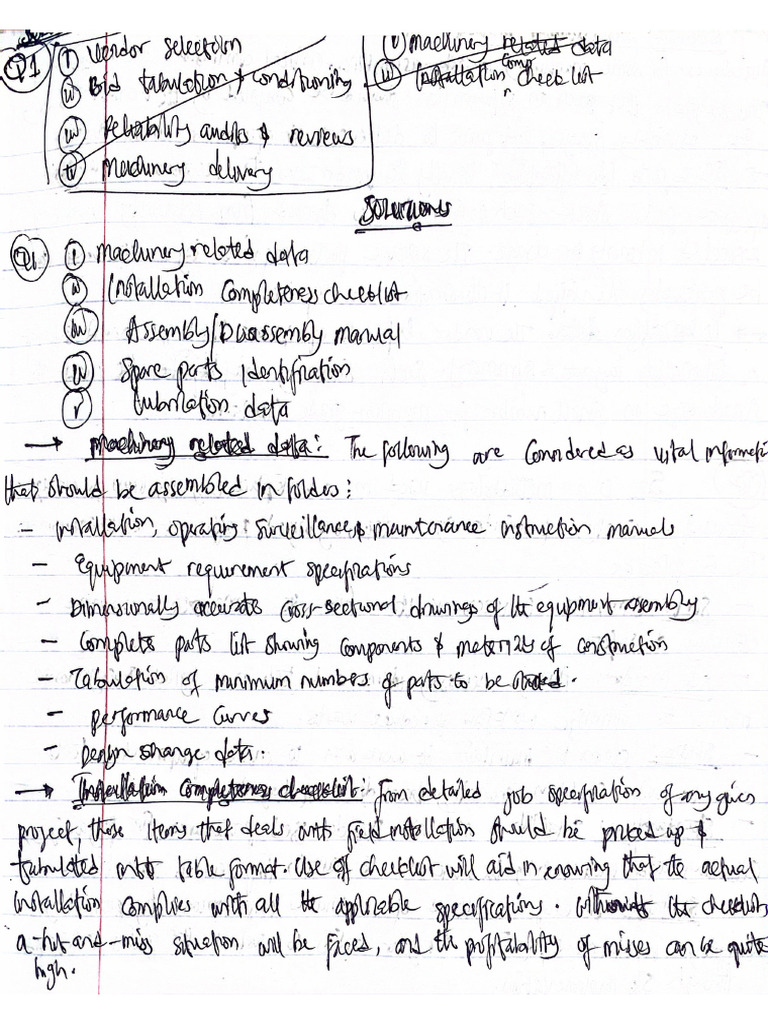 Q1 (i) Vendor selection
(ii) Bid tabulation & conditioning
(iii) Reliability audits & reviews
(iv) Machinery delivery
(v) Machinery related data
(vi) Installation comp checklist
Solutions
Q1. (i) Machinery related data
(ii) Installation Completeness checklist
(iii) Assembly/Disassembly manual
(iv) Spare parts Identification
(v) Lubrication data
→ Machinery related data: The following are Considered as vital informati
that should be assembled in folders:
- Installation, operating surveillance & maintenance instruction manuals
- Equipment requirement specifications
- Dimensionally accurate cross-sectional drawings of the equipment assembly
- Complete parts list showing components & materials of construction
- Tabulation of minimum numbers of parts to be stocked.
- Performance Curves
- Design change data.
→ Installation Completeness checklist: From detailed job specification of any given
project, those items that deals with field installation should be picked up &
tabulated into table format. Use of checklist will aid in knowing that the actual
installation complies with all the applicable specifications. Without the checklists
a-hit-and-miss situation will be faced, and the profitability of misses can be quite
high.